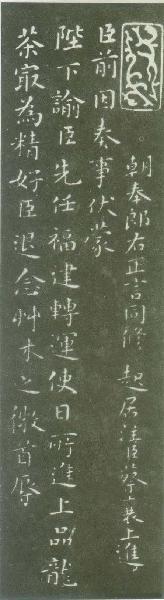 朝奉郎右正言同修起居注臣蔡襄上進
臣前因奏事伏蒙
陛下諭臣先任福建轉運使日所進上品龍
茶最為精好臣退念艸木之微首辱